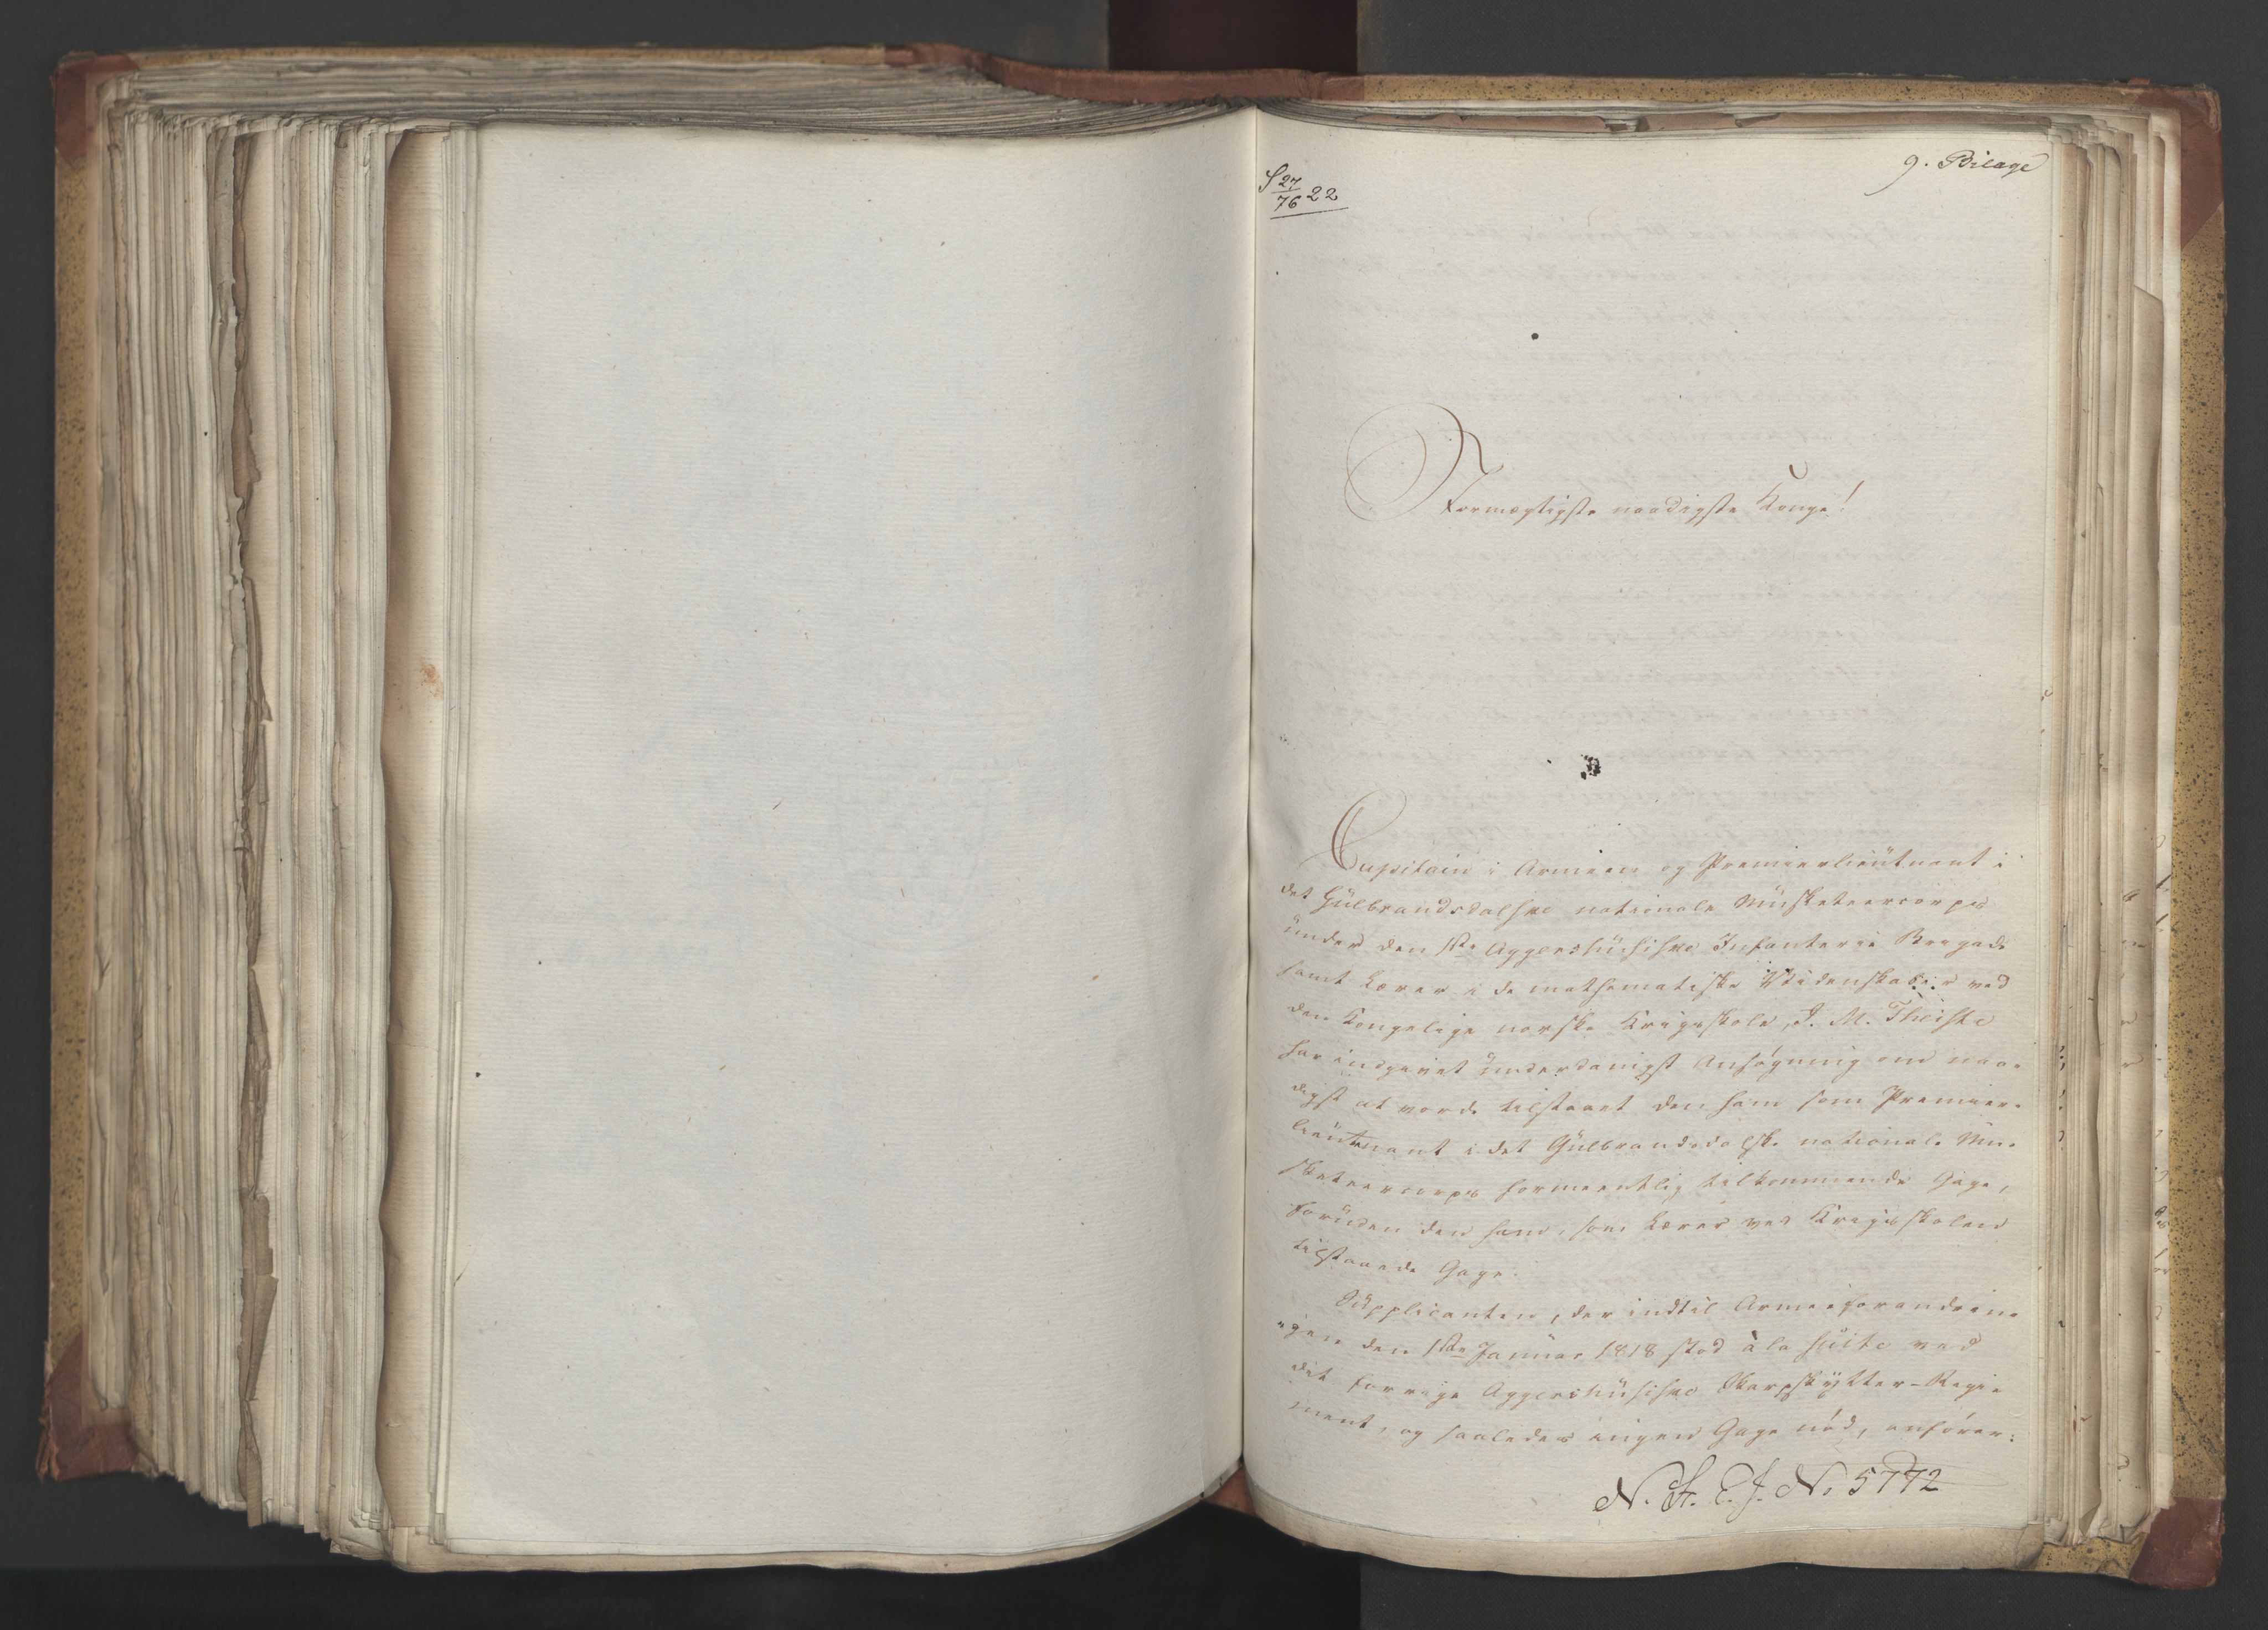 9. Bilage
S 27/76 22
Stormægtigste naadigste Konge!
Capitain i Armeen og Premierlieutnant i
det Gülbrandsdalske nationale Müsketeercorps
ünder den 1ste Aggershüsiske Infanterie Brigade
samt Lærer i de mathematiske Videnskaber ved
den Kongelige norske Krigsskole, J. M. Theiste
har indgivet ünderdanigst Ansøgning om naa-
digst at vorde tilstaaet den ham som Premier-
lieutnant i det Gülbrandsdalske nationale Mu-
sketeercorps formeentlig tilkommende Gage,
forüden den ham, som Lærer ved Krigsskolen
tilstaaede Gage.
Supplicanten, der indtil Armeeforandrin-
"gen den 1ste Januar 1818 stod à la süite ved
det forrige Aggershüsiske Skarpskytter-Regie
ment, og saaledes ingen Gage nød, anfører:
N. A. E. J. No 5772